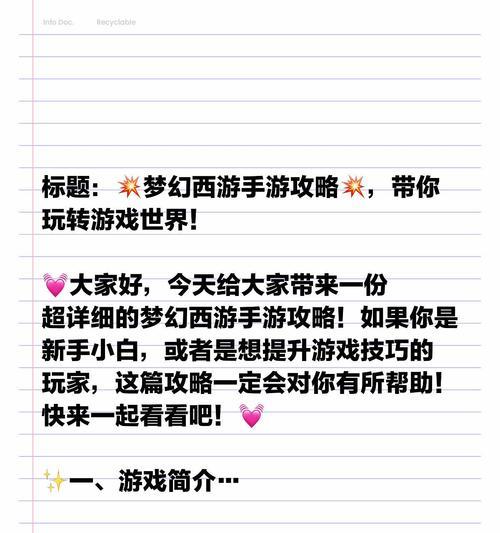 Info Doc. Recyclable
标题：💥梦幻西游手游攻略💥，带你
玩转游戏世界！
💓大家好，今天给大家带来一份
超详细的梦幻西游手游攻略！如果你是
新手小白，或者是想提升游戏技巧的
玩家，这篇攻略一定会对你有所帮助！
快来一起看看吧！💓
✨一、游戏简介…